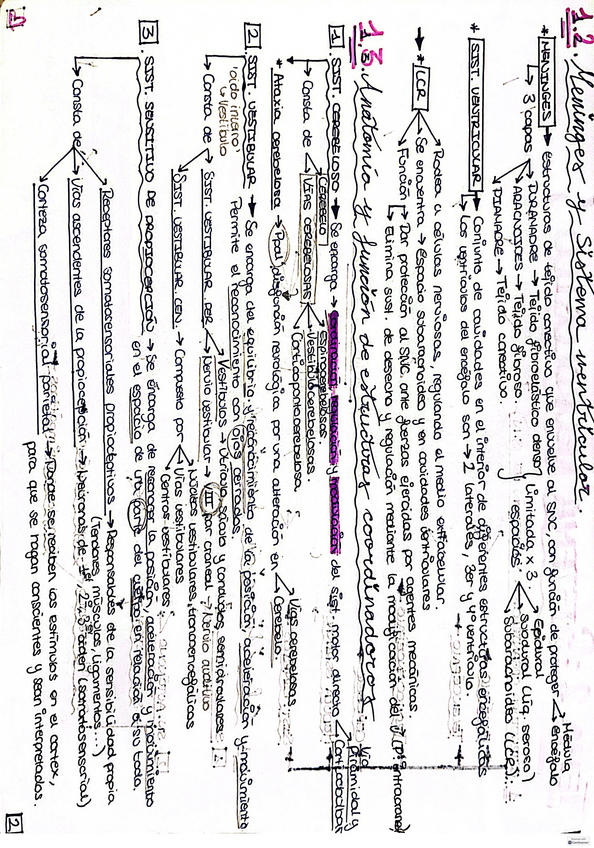 1.2. Meninges y Sistema ventricular.
* MENINGES → estructuras de tejido conectivo que envuelve al SNC, con función de proteger
Médula
encéfalo
→ 3 capas
DURAMADRE → Tejido fibroelástico denso
ARACNOIDES → Tejido fibroso.
PIAMADRE → Tejido conectivo.
Limitada x 3
espacios:
Epidural
Subdural (líq. seroso)
Subaracnoideo (LCR)
* SIST. VENTRICULAR → Conjunto de cavidades en el interior de diferentes estructuras encefálicas
Los ventrículos del encéfalo son → 2 laterales, 3er y 4º ventrículo.
→ * LCR
Rodea a células nerviosas, regulando el medio extracelular.
Se encuentra → Espacio subaracnoideo y en cavidades ventriculares
Función → Dar protección al SNC, ante fuerzas ejercidas por agentes mecánicos.
Elimina sust. de desecho y regulación mediante la modificación del
1.3. Anatomía y función de estructuras coordinadoras
Vía
Piramidal y
1 SIST. CEREBELOSO → Se encarga → coordinación, regulación y modulación del sist. motor directo
→ Consta de
CEREBELO
VÍAS CEREBELOSAS
Espinocerebelosas
Vestibulocerebelosas.
Corticopontocerebelosa.
* Ataxia cerebelosa → disfunción neurológica por una alteración en
Vías cerebelosas
Cerebelo.
2 SIST. VESTIBULAR → Se encarga del equilibrio y reconocimiento de la posición, aceleración y movimiento
Permite el reconocimiento con ojos cerrados.
oído interno
Vestíbulo
→ Consta de
SIST. VESTIBULAR PER.
Vestíbulos → Utrículo, sáculo y conductos semicirculares
Nervio vestibular → VIII par craneal → Nervio auditivo
SIST. VESTIBULAR CEN. → Compuesto por
Núcleos vestibulares, troncoencefálicos
Vías vestibulares
Centros vestibulares
3 SIST. SENSITIVO DE PROPIOCEPCIÓN → Se encarga de reconocer la posición, aceleración y movimiento
en el espacio de una parte del cuerpo en relación a su todo.
→ Consta de
Receptores somatosensoriales propioceptivos → Responsables de la sensibilidad propia
(Tendones, músculos, ligamentos...)
Vías ascendentes de la propiocepción → Neuronas de 1er, 2º y 3er orden (somatosensorial)
Corteza somatosensorial parietal → Donde se reciben los estímulos en el cortex,
para que se hagan conscientes y sean interpretados.
2